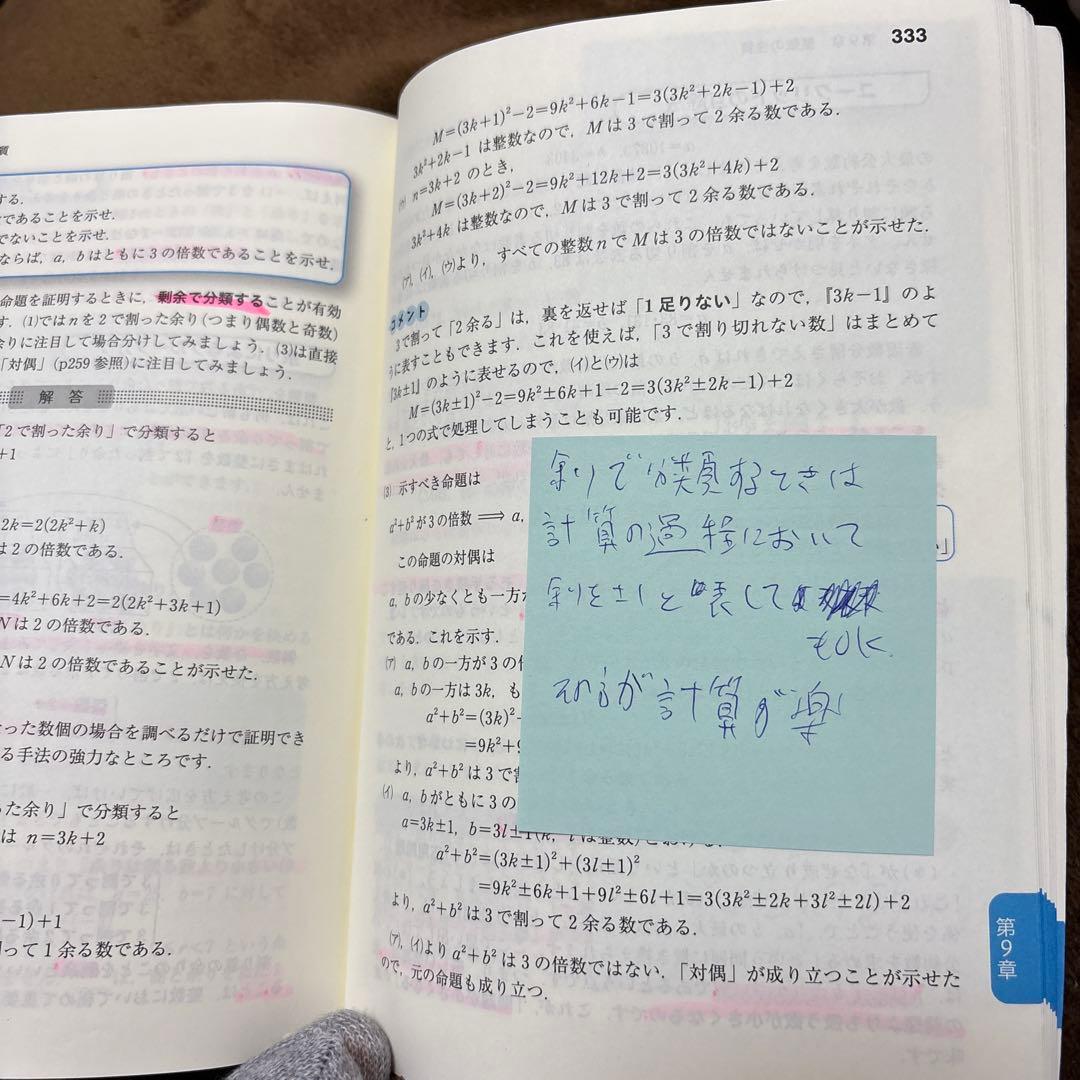 する.
であることを示せ.
でないことを示せ.
ならば, a, bはともに3の倍数であることを示せ.
命題を証明するときに, 剰余で分類することが有効
す. (1)ではnを2で割った余り(つまり偶数と奇数)
余りに注目して場合分けしてみましょう. (3)は直接
「対偶」(p259参照)に注目してみましょう.
解答
「2で割った余り」で分類すると
+1
2k=2(2k²+k)
は2の倍数である.
=4k²+6k+2=2(2k²+3k+1)
Nは2の倍数である.
Nは2の倍数であることが示せた.
った数個の場合を調べるだけで証明でき
る手法の強力なところです.
った余り」で分類すると
は n=3k+2
-1)+1
割って1余る数である.
333
M=(3k+1)²-2=9k²+6k-1=3(3k²+2k-1)+2
3k²+2k-1 は整数なので, Mは3で割って2余る数である.
(ウ) n=3k+2 のとき,
M=(3k+2)²-2=9k²+12k+2=3(3k²+4k)+2
3k²+4k は整数なので, Mは3で割って2余る数である.
(ア), (イ), (ウ)より, すべての整数nでMは3の倍数ではないことが示せた.
コメント
3で割って「2余る」は, 裏を返せば「1足りない」なので,『3k-1』のよ
うに表すこともできます. これを使えば,「3で割り切れない数」はまとめて
『3k±1』のように表せるので, (イ)と(ウ)は
M=(3k±1)²-2=9k²±6k+1-2=3(3k²±2k-1)+2
と, 1つの式で処理してしまうことも可能です.
(3) 示すべき命題は
a²+b²が3の倍数⟹a,
この命題の対偶は
a, bの少なくとも一方が
である. これを示す.
(ア) a, bの一方が3の倍
a, bの一方は3k, も
a²+b²=(3k)²
=9k²+9
より, a²+b²は3で割
(イ) a, bがともに3の
a=3k±1, b=3l±1(k, lは整数)とおける.
a²+b²=(3k±1)²+(3l±1)²
=9k²±6k+1+9l²±6l+1=3(3k²±2k+3l²±2l)+2
より, a²+b²は3で割って2余る数である.
(ア), (イ)よりa²+b²は3の倍数ではない.「対偶」が成り立つことが示せた
ので, 元の命題も成り立つ.
余りで分類するときは
計算の過程において
余りを±1と表して
もOK.
その方が計算が楽
第9章